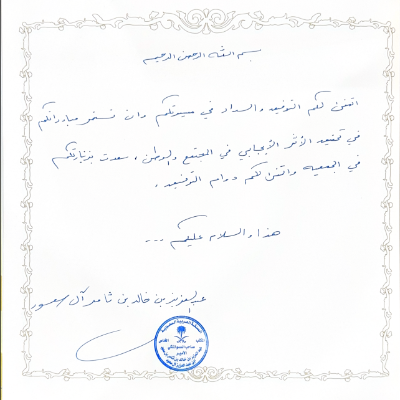 بسم الله الرحمن الرحيم
اتمنى لكم التوفيق والسداد في مسيرتكم وان تستمر مبادراتكم
في تحقيق الأثر الإيجابي في المجتمع والوطن، سعدت بزيارتكم
في الجمعيه واتمنى لكم دوام التوفيق.
هذا والسلام عليكم ...
عبدالعزيز بن خالد بن ثامر آل سعود